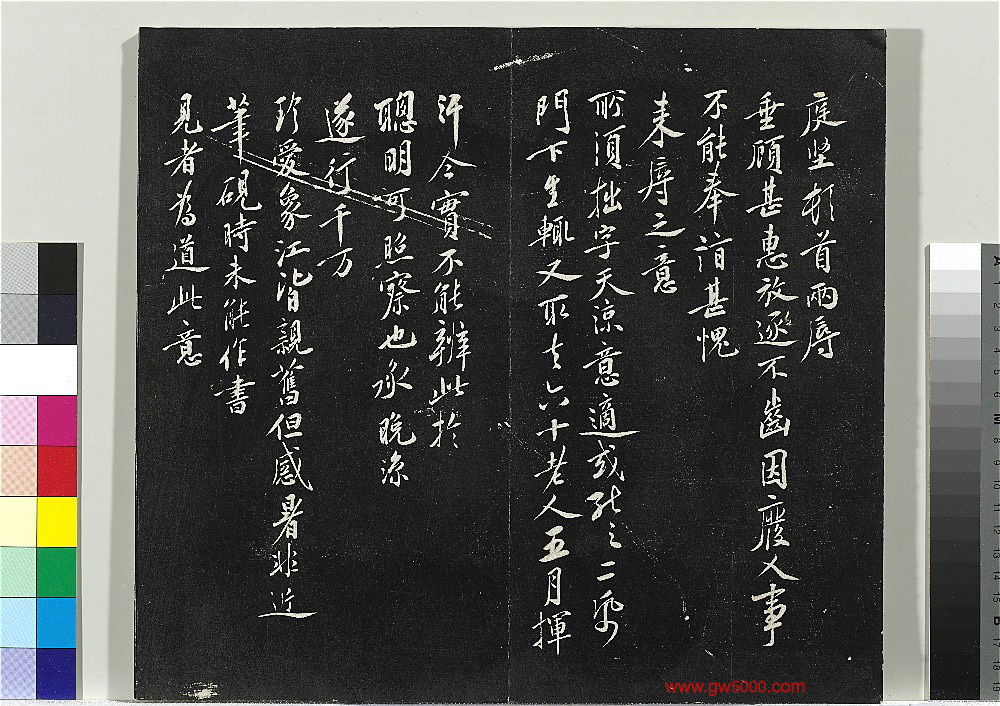 庭堅頓首兩辱
垂顧甚惠放逐不齒因廢人事
不能奉詣甚愧
来辱之意
所須拙字天涼意適或能三二紙
門下生輒又取去六十老人五月揮
汗今實不能辦此於
聰明可照察也承晚涼
遂行千万
珍愛象江皆親舊但感暑非近
筆硯時未能作書
見者為道此意
www.gw5000.com